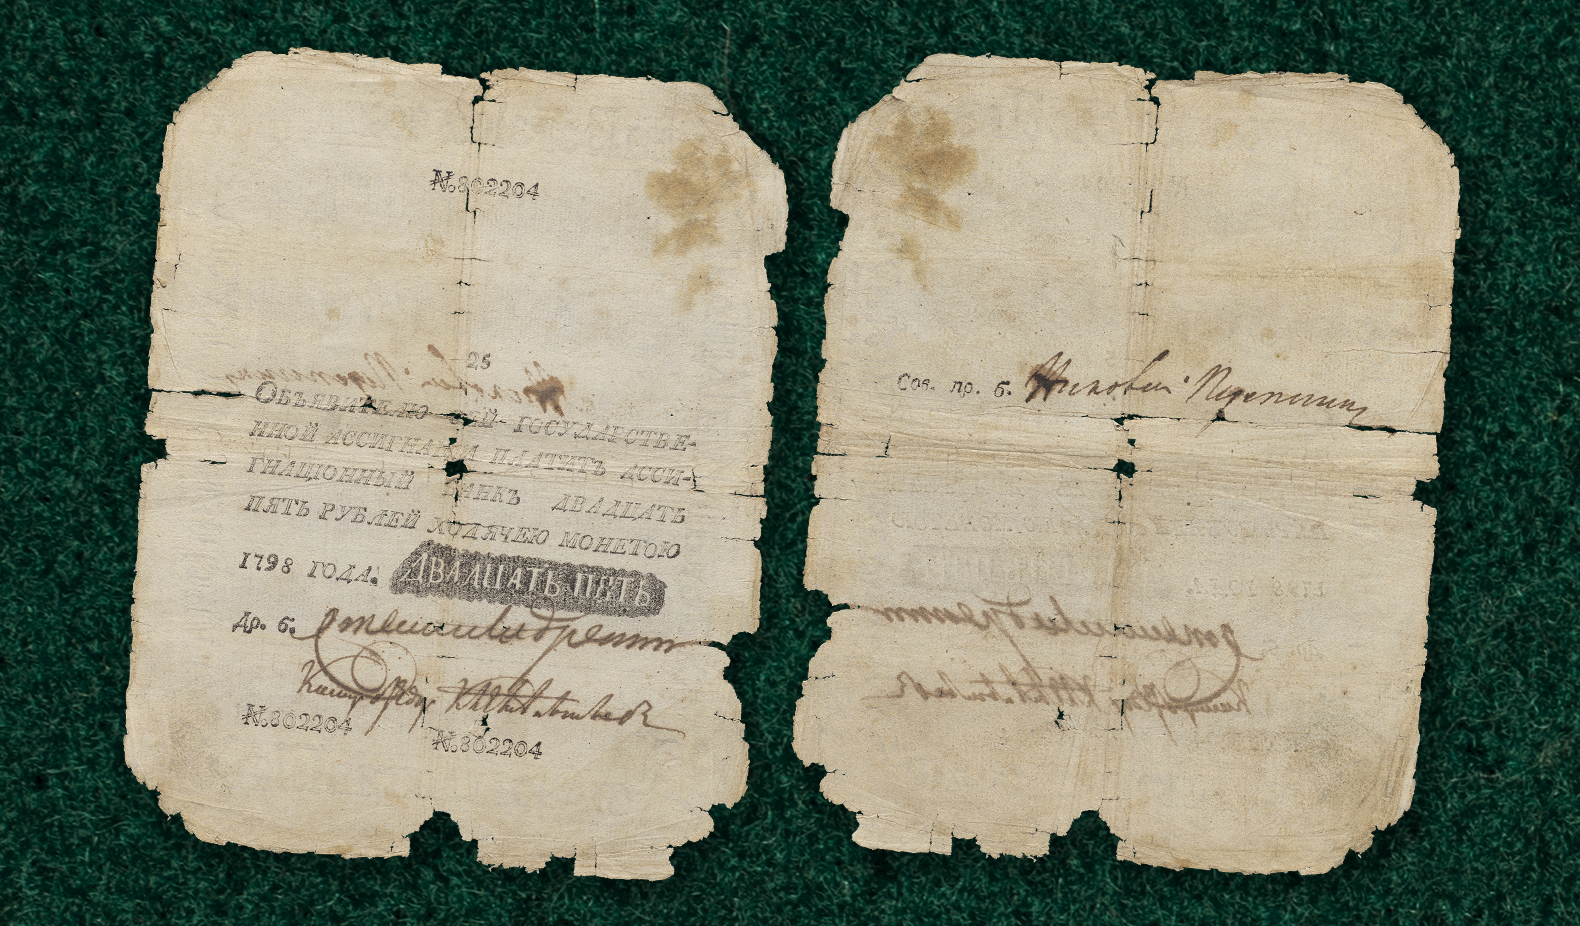 №.802204
25
ОБЪЯВИТЕЛЮ СЕЙ ГОСУДАРСТВЕ-
ННОЙ АССИГНАЦІИ ПЛАТИТЪ АССИ-
ГНАЦІОННЫЙ БАНКЪ ДВАДЦАТЬ
ПЯТЬ РУБЛЕЙ ХОДЯЧЕЮ МОНЕТОЮ
1798 ГОДА. ДВАДЦАТЬ ПЯТЬ
Др. б.
№.802204
№.802204
Сов. пр. б.